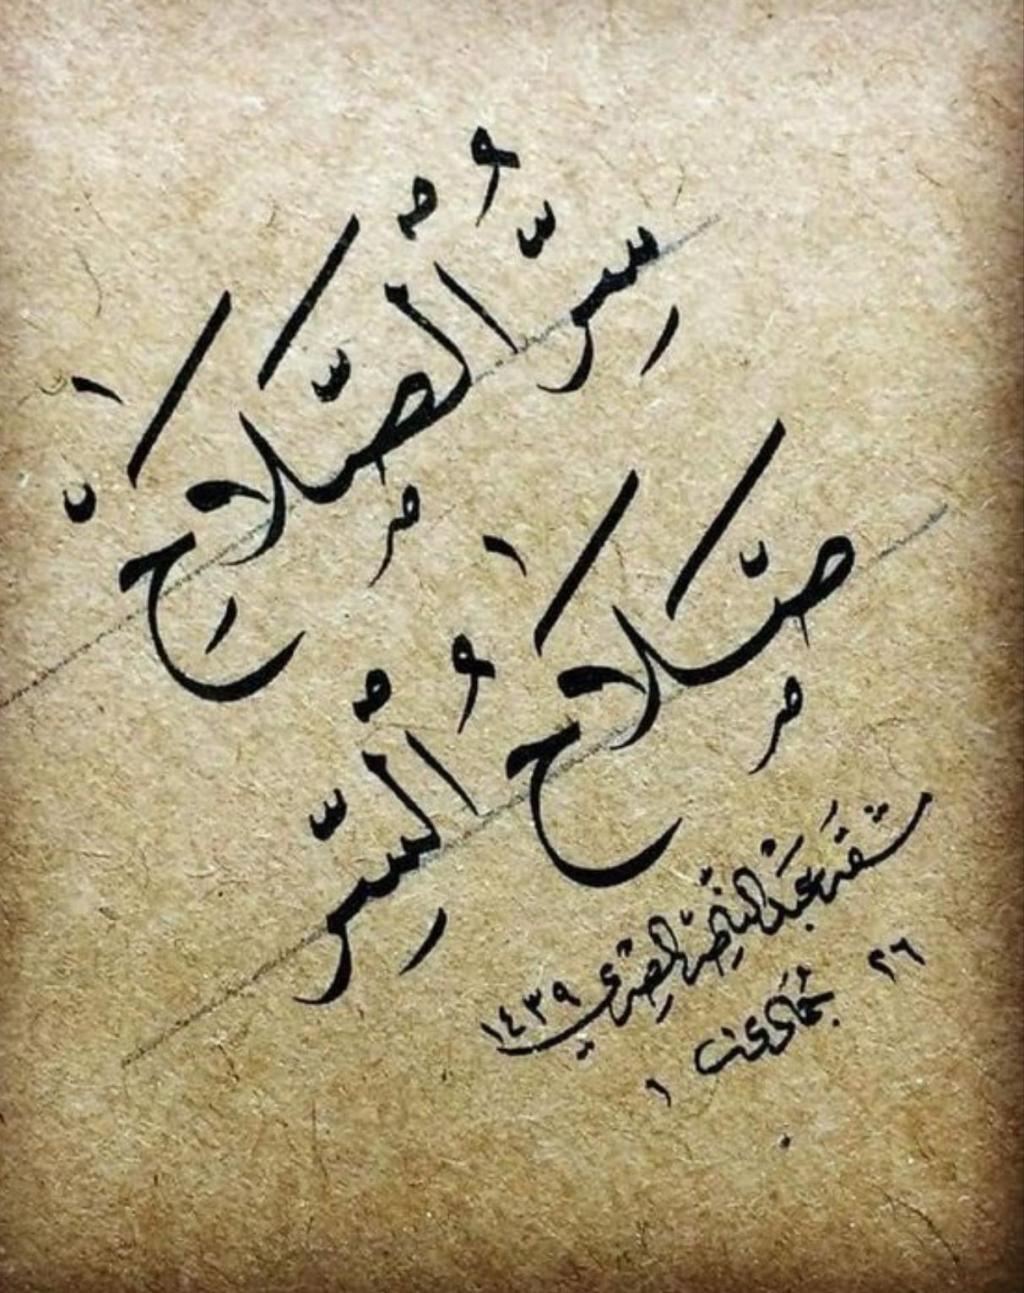 سِرُّ الصَّلَاحِ
صَلَاحُ السِّرِّ
مشقه عبد الناصر المصري ١٤٣٩
٢٦ جمادى
١